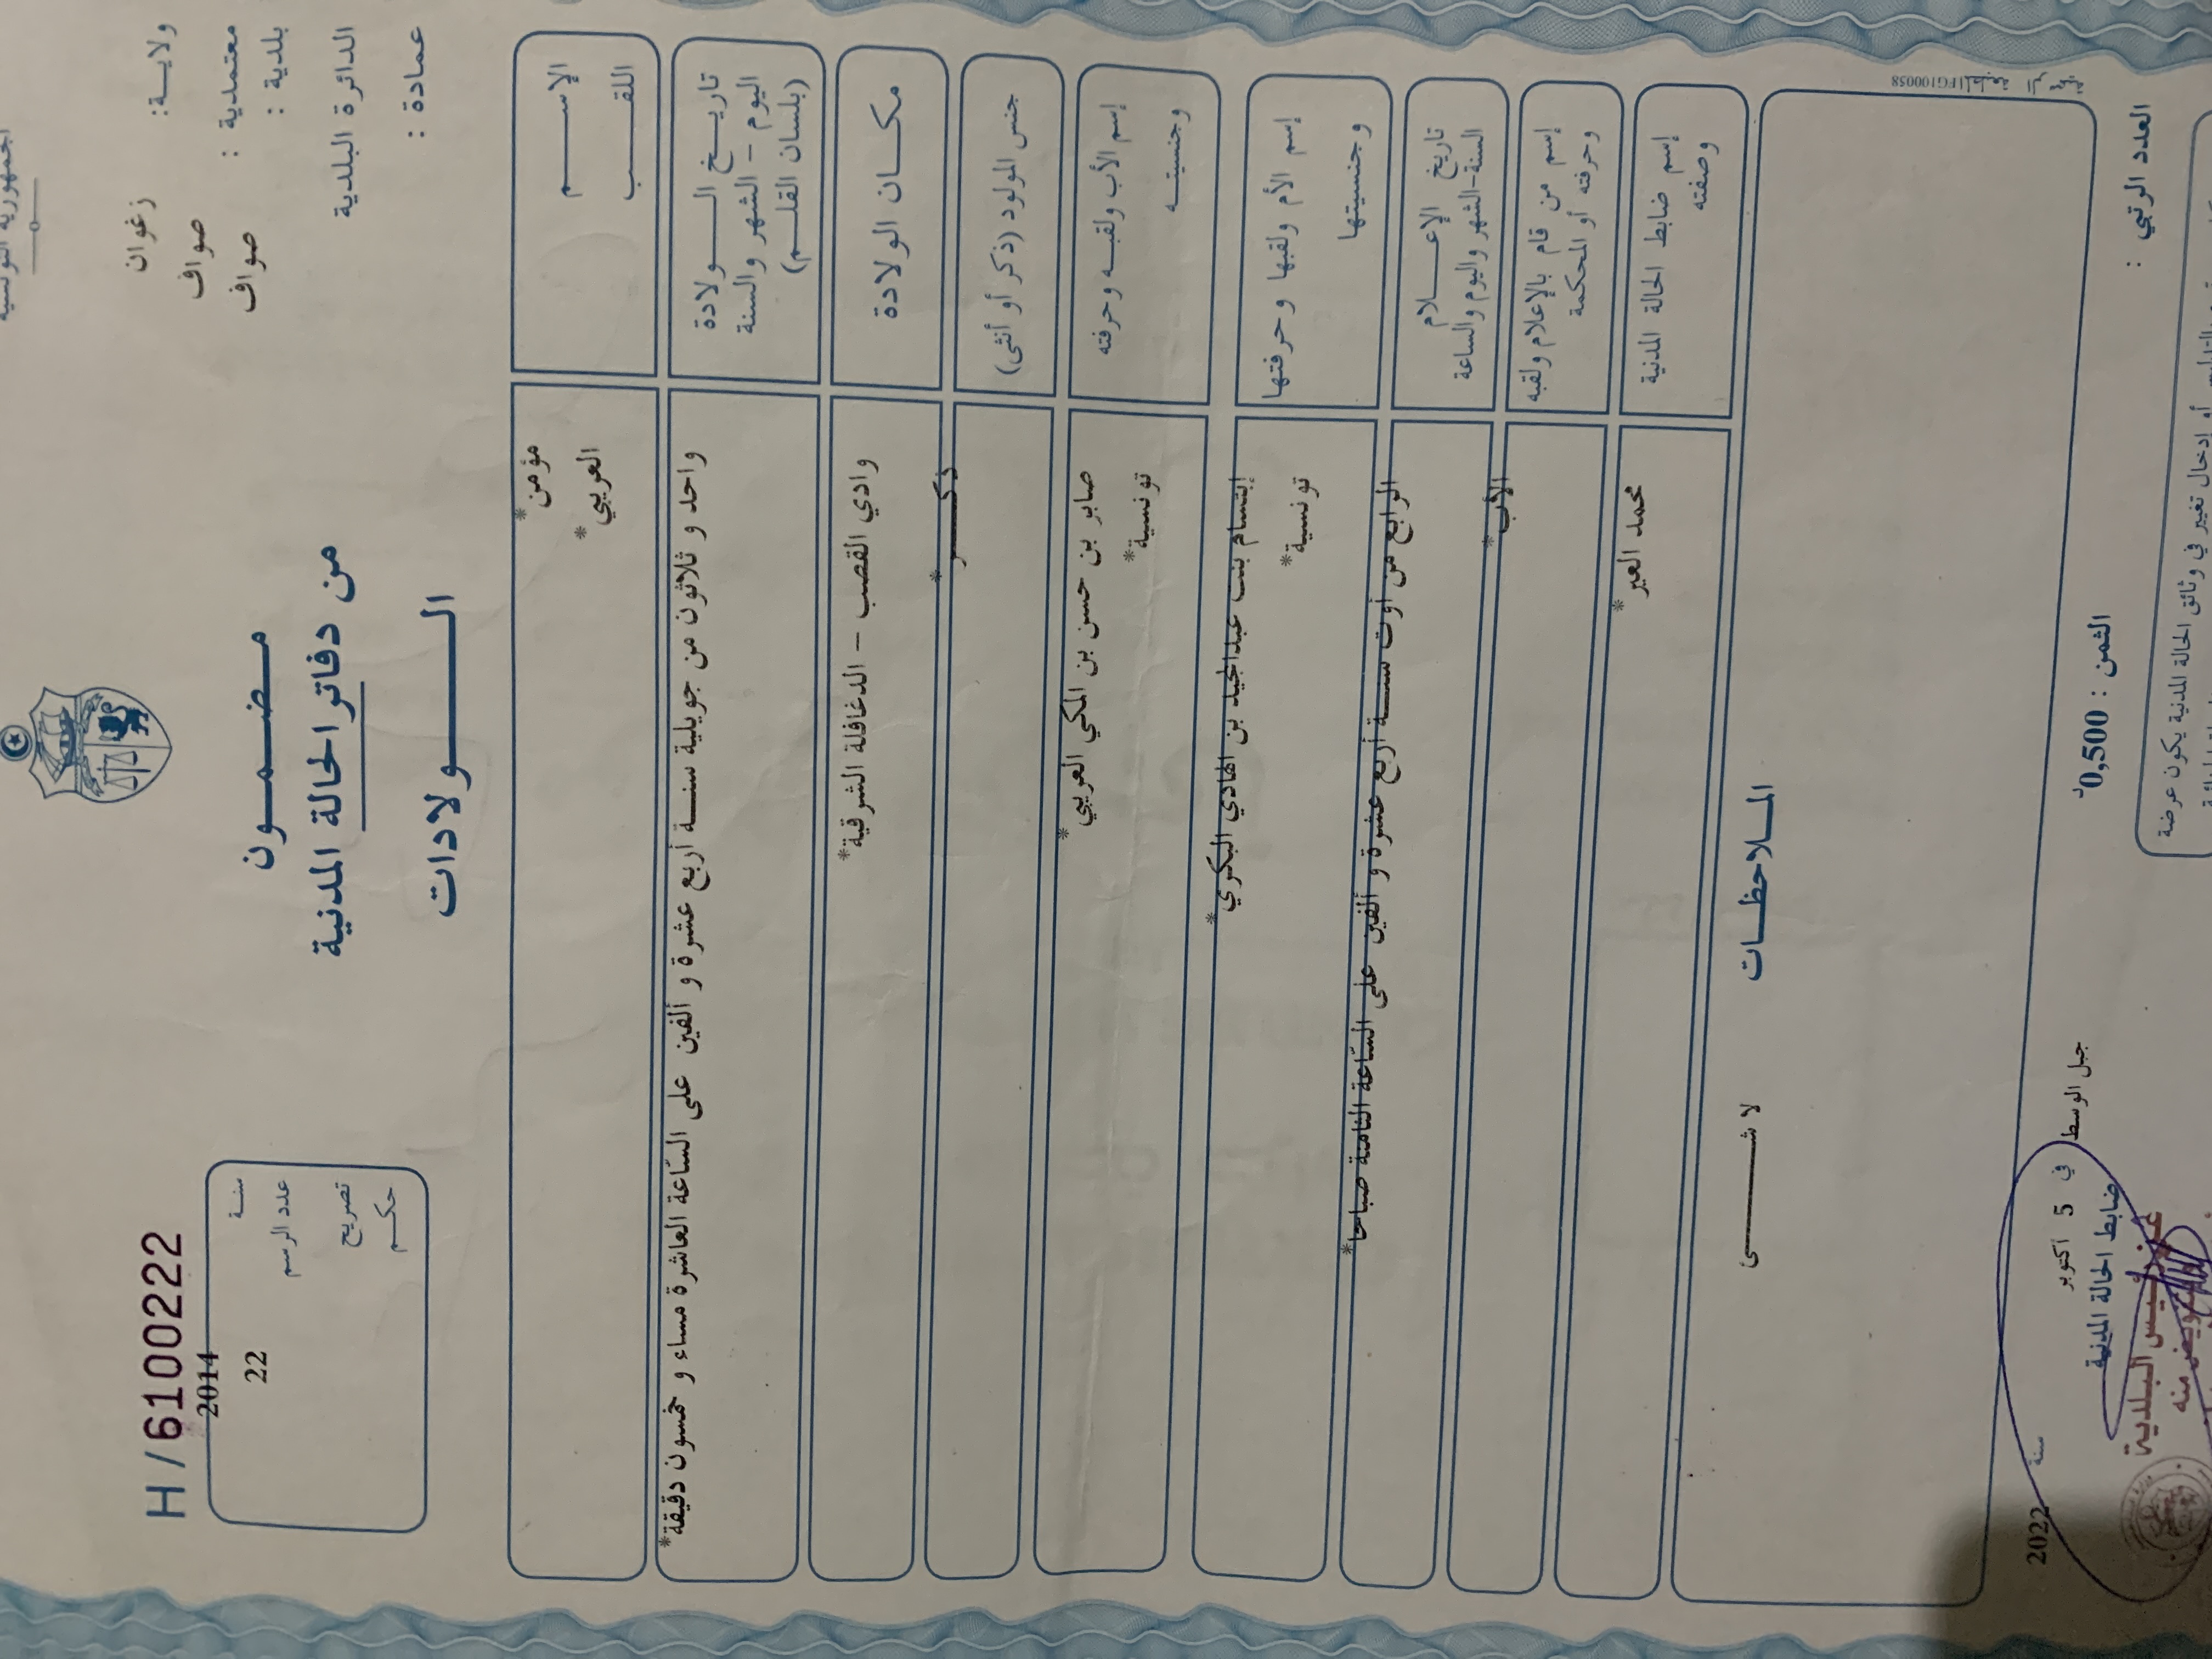 الجمهورية التونسية
ولايـــة: زغوان
معتمدية : صواف
بلدية : صواف
الدائرة البلدية
عمادة :
مـضـمـــون
من دفاتر الحالة المدنية
الـــولادات
H/6100222
سنـة 2014
عدد الرسم 22
تصريح
حكـم
الإســـم مؤمن*
اللقـــب العريبي*
تاريـخ الــولادة
اليوم - الشهر والسنة
(بلسان القلـم)
واحد و ثلاثون من جويلية سنــة أربع عشرة و ألفين على السّاعة العاشرة مساء و خمسون دقيقة*
مكــان الولادة وادي القصب - الدغافلة الشرقية*
جنس المولود (ذكر أو أنثى) ذكــر*
إسم الأب ولقبـه وحرفته صابر بن حسن بن المكي العريبي*
وجنسيتـه تونسية*
إسم الأم ولقبها وحرفتها إبتسام بنت عبدالمجيد بن الهادي البكري*
وجنسيتها تونسية*
تاريخ الإعــلام
السنة-الشهر واليوم والساعة
الرابع من أوت سنــة أربع عشرة و ألفين على السّاعة الثامنة صباحا*
إسم من قام بالإعلام ولقبه
وحرفته أو المحكمة
الأب*
إسم ضابط الحالة المدنية
وصفته
محمد العير*
المـلاحظـات
لا شــــــى
IFG100058
العدد الرتبي :
الثمن : 0,500د
جبل الوسط في 5 أكتوبر سنة 2022
ضابط الحالة المدنية
عن رئيس البلدية
وبتفويض منه
أو إدخال تغيير في وثائق الحالة المدنية يكون عرضة